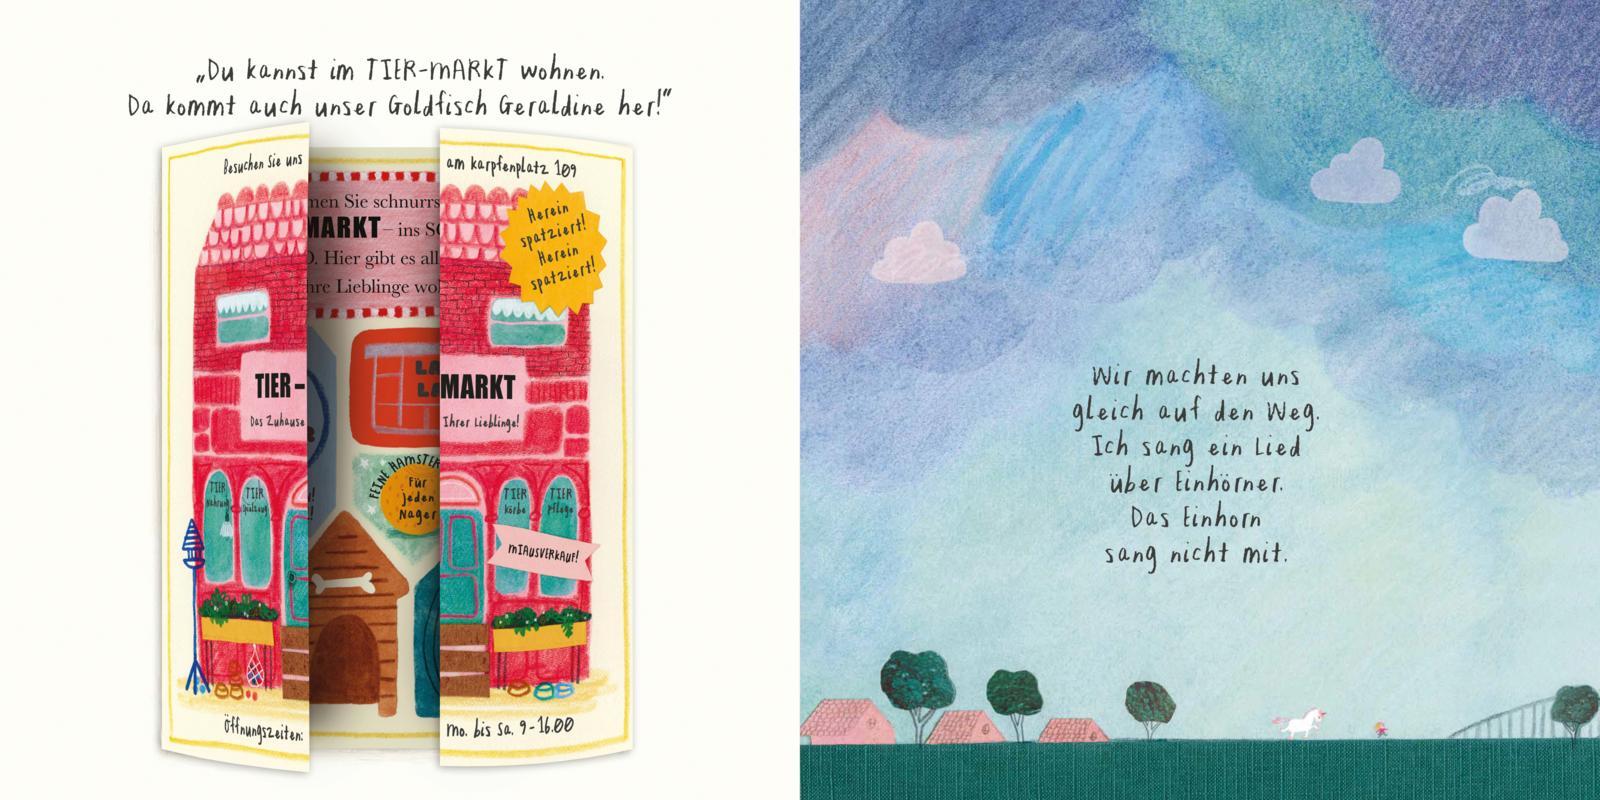 „Du kannst im TIER-MARKT wohnen.
Da kommt auch unser Goldfisch Geraldine her!“
Besuchen Sie uns
am Karpfenplatz 109
Herein
spatziert!
Herein
spatziert!
Sie schnurrs
MARKT – ins
Hier gibt es
Lieblinge
TIER-
MARKT
Das Zuhause
Ihrer Lieblinge!
FEINE HAMSTER
Für
jeden
Nager
TIER
Nahrung
TIER
Spielzeug
TIER
Körbe
TIER
pflege
MIAUSVERKAUF!
Öffnungszeiten:
Mo. bis Sa. 9-16.00
Wir machten uns
gleich auf den Weg.
Ich sang ein Lied
über Einhörner.
Das Einhorn
sang nicht mit.